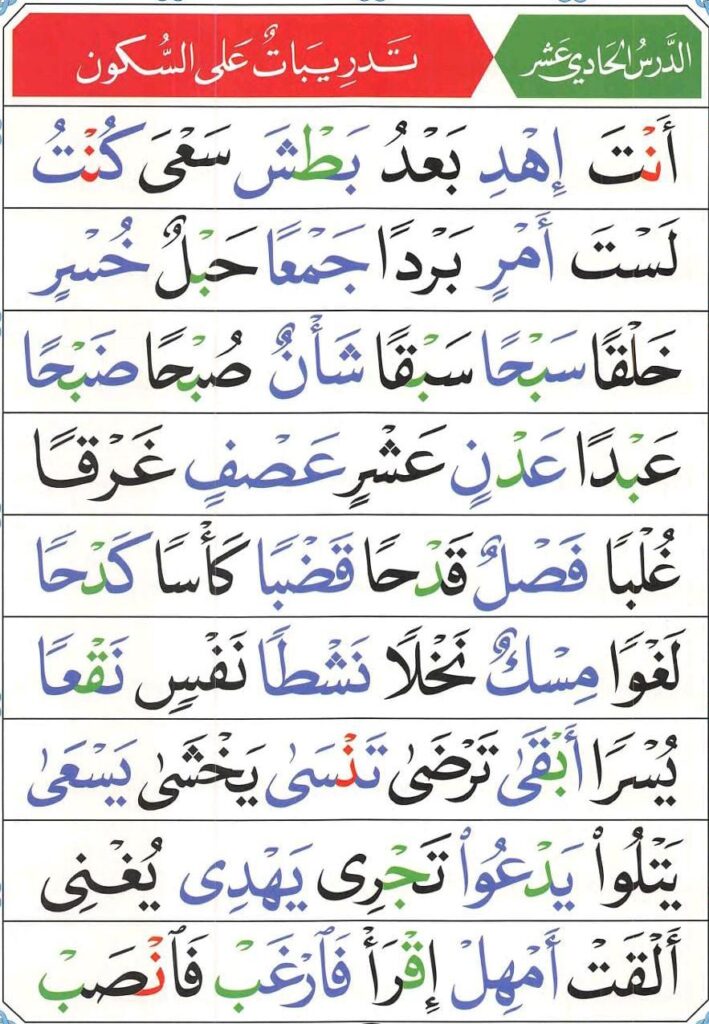 الدَّرْسُ الحَادِي عَشَر
تَدرِيبَاتٌ عَلى السُّكون
أَنْتَ إِهْدِ بَعْدُ بَطْشَ سَعْىَ كُنْتُ
لَسْتَ أَمْرٍ بَرْدًا جَمْعًا حَبْلٌ خُسْرٍ
خَلْقًا سَبْحًا سَبْقًا شَأْنٌ صُبْحًا ضَبْحًا
عَبْدًا عَدْنٍ عَشْرٍ عَصْفٍ غَرْقًا
غُلْبًا فَصْلٌ قَدْحًا قَضْبًا كَأْسًا كَدْحًا
لَغْوًا مِسْكٌ نَخْلًا نَشْطًا نَفْسٍ نَقْعًا
يُسْرًا أَبْقَىٰ تَرْضَىٰ تَنْسَىٰ يَخْشَىٰ يَسْعَىٰ
يَتْلُوا۟ يَدْعُوا۟ تَجْرِى يَهْدِى يُغْنِى
أَلْقَتْ أَمْهِلْ إِقْرَأْ فَٱرْغَبْ فَٱنْصَبْ